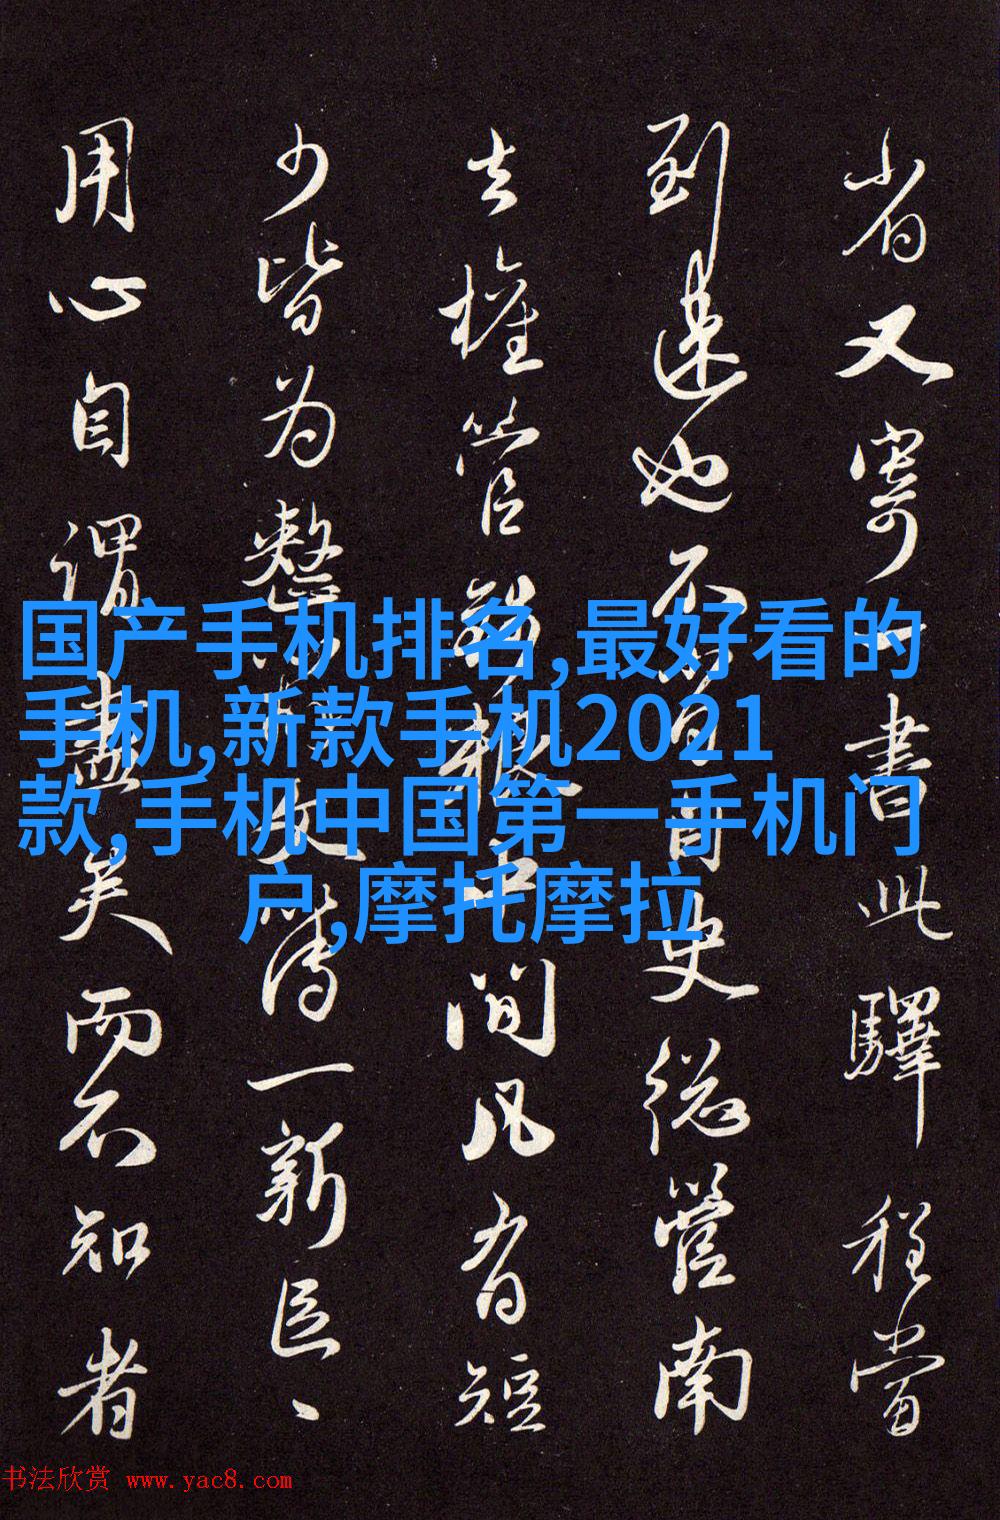 省又寄一書此驛程當
到速也不史總管南
去權管中間凡有短
少皆为整一新
用心自謂盡矣而不知者
国产手机排名,最好看的
手机,新款手机2021
款,手机中国第一手机门
户,摩托摩拉
书法欣赏 www.yac8.com